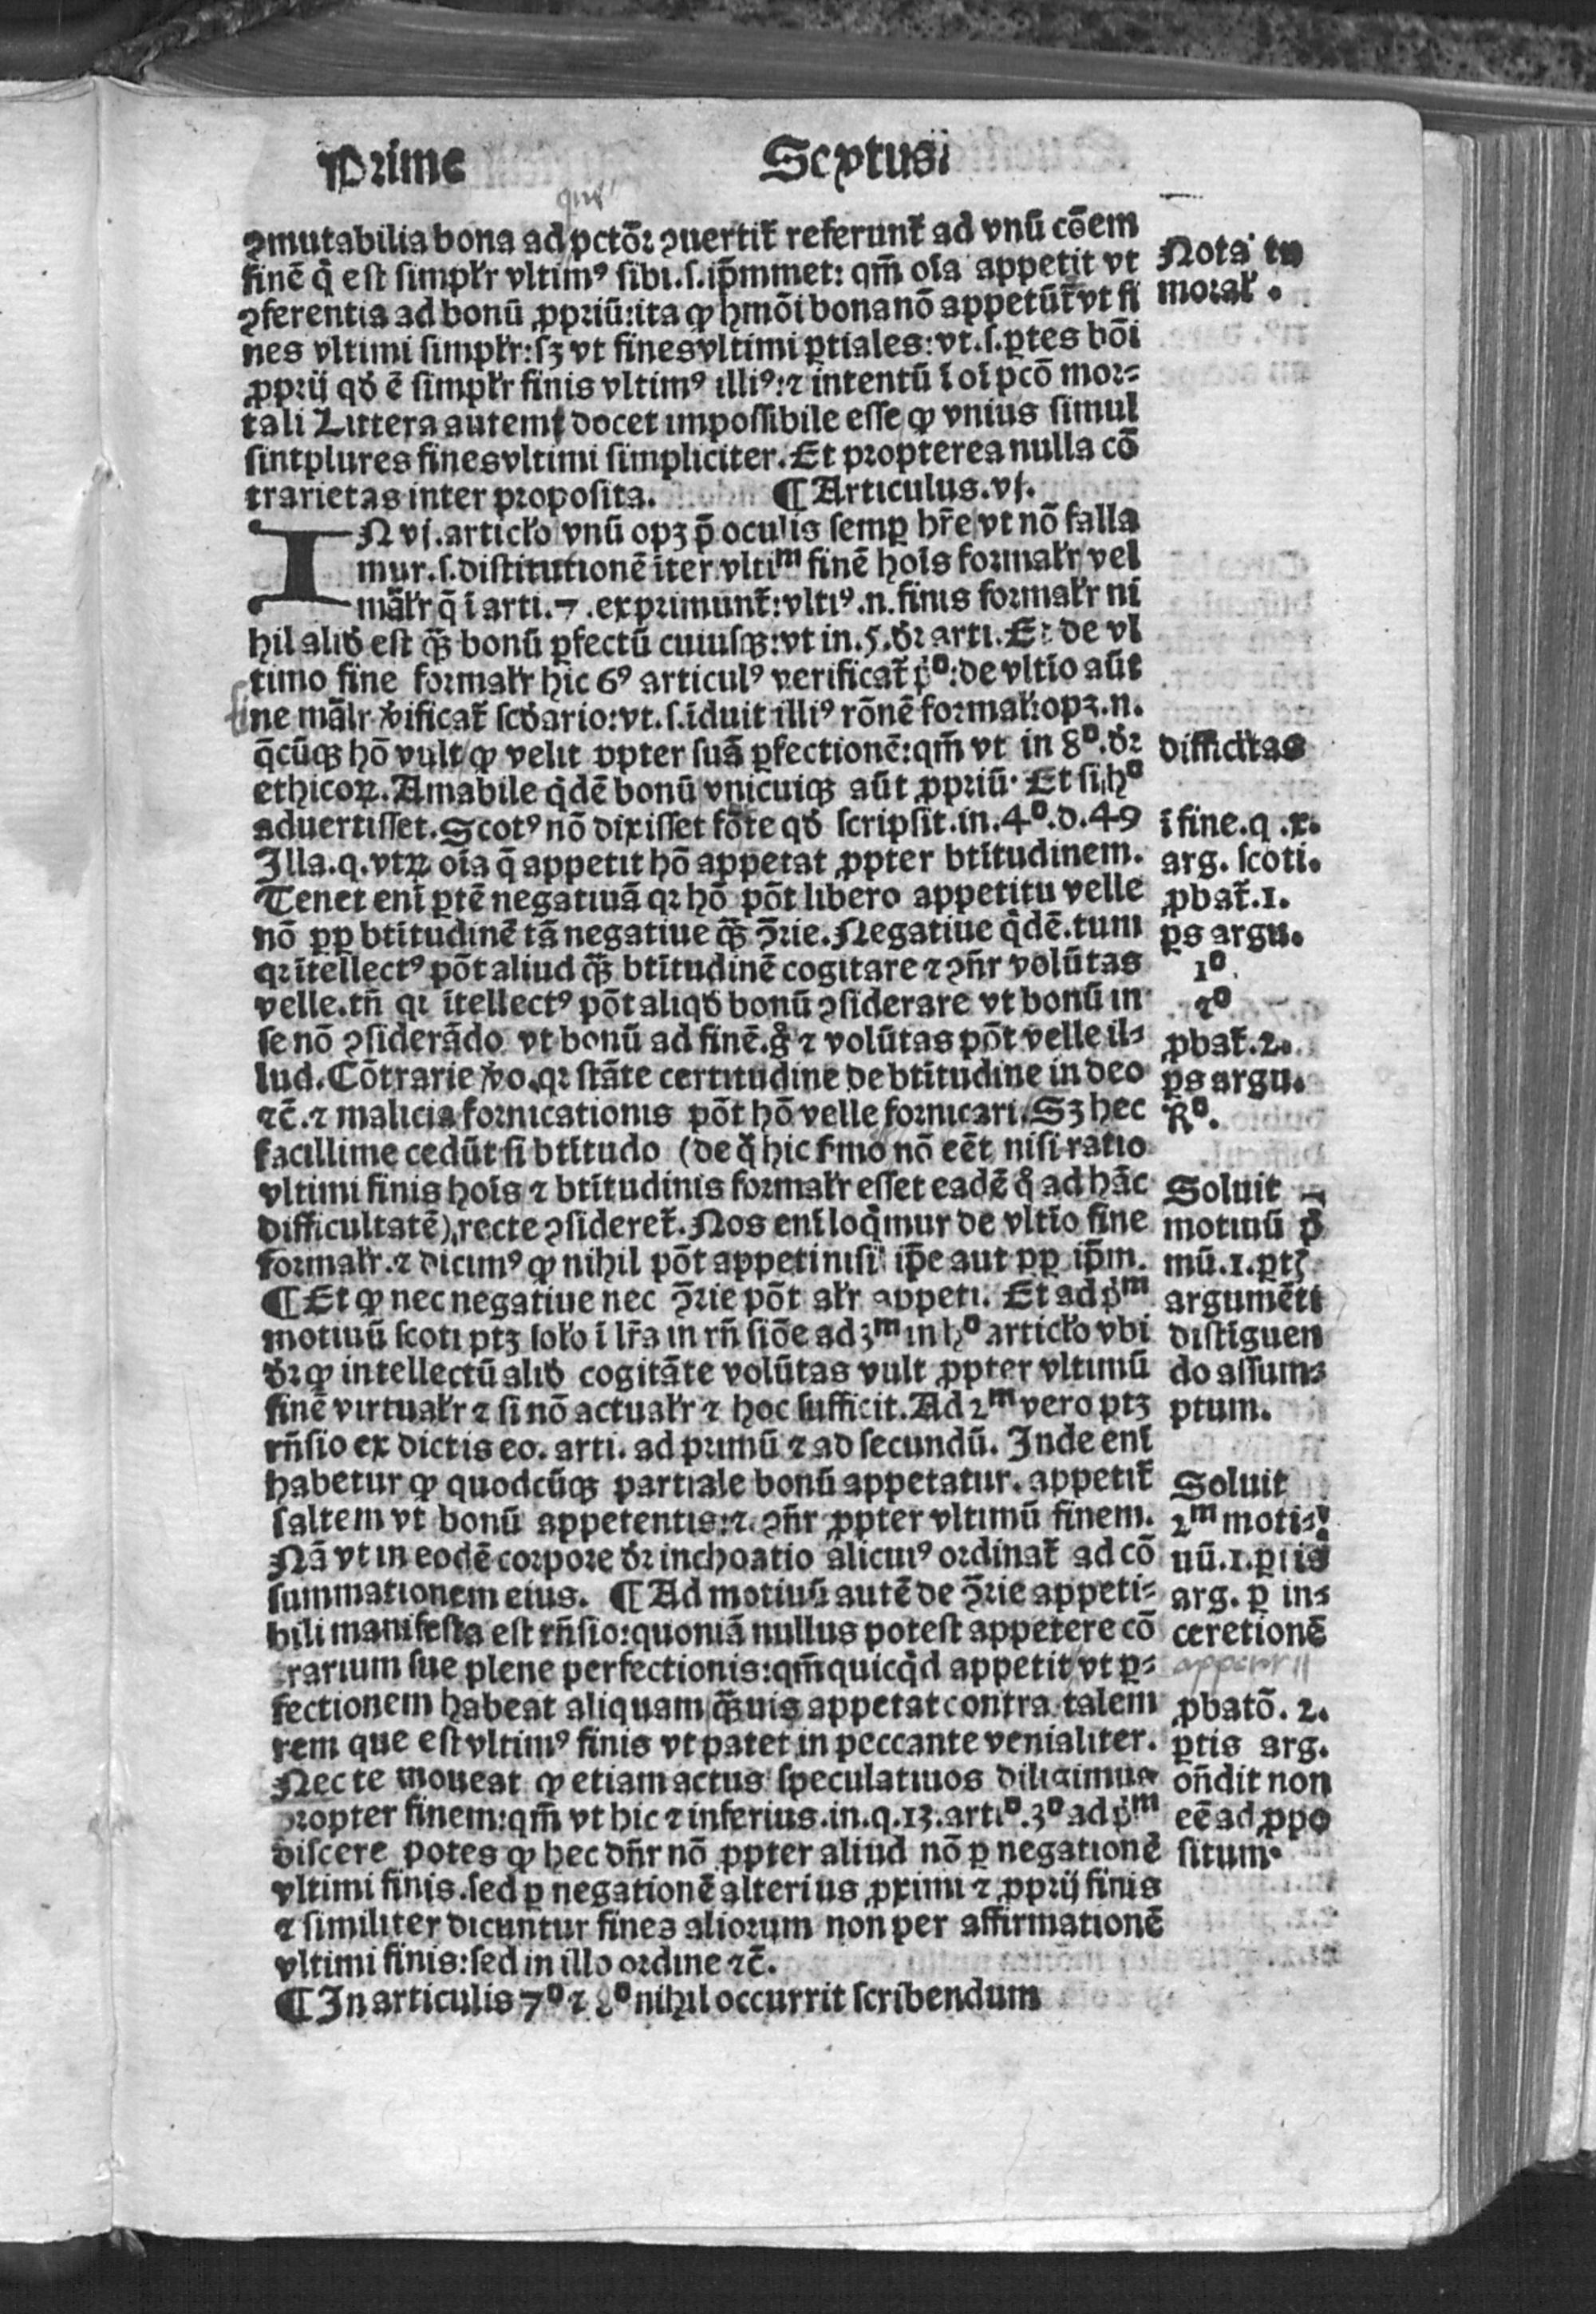 Prime Septusi
ꝯmutabilia bona ad pctōꝛ ꝯuertit᷑ referunt᷑ ad vnū cōem
finē q̇ est simpłr vltimꝰ sibi.s.ip̄mmet: qm̄ oīa appetit vt
ꝯferentia ad bonū ꝓpriū:ita ꝙ hmōi bona nō appetūt᷑ vt fi
nes vltimi simpłr:sꝫ vt fines vltimi ꝑtiales:vt.s.ꝑtes bōi
ꝓprij qđ ē simpłr finis vltimꝰ illiꝰ:⁊ intentū ī oī pcō mor⸗
tali Littera autem docet impossibile esse ꝙ vnius simul
sint plures fines vltimi simpliciter. Et propterea nulla cō
trarietas inter proposita. ¶ Articulus.vj.
IN vj.articło vnū opꝫ p̄ oculis semꝑ hr̄e vt nō falla
mur.s.distitutionē iter vltiᵐ finē hoīs formałr vel
māłr q̄ ī arti.7.exprimunt᷑:vltiꝰ.n.finis formałr ni
hil aliđ est qꝫ̄ bonū ꝑfectū cuiusqꝫ:vt in.5.đꝛ arti. Et de vl
timo fine formałr hic 6ꝰ articulꝰ verificat᷑ p̄º:de vltīo aūt
fine māłr v̓ificat᷑ scđario:vt.s.īduit illiꝰ rōnē formałr:opꝫ.n.
q̄cūqꝫ hō vult ꝙ velit ꝓpter suā ꝑfectionē:qm̄ vt in 8º.đꝛ
ethicoꝝ.Amabile q̇dē bonū vnicuiqꝫ aūt ꝓpriū. Et si hº
aduertisset.Scotꝰ nō dixisset fōte qđ scripsit.in.4º.d.49
Illa.q.vtꝝ oīa q̄ appetit hō appetat ꝓpter btītudinem.
Tenet enī ꝑtē negatiuā qꝛ hō pōt libero appetitu velle
nō ꝓꝑ btītudinē tā negatiue qꝫ̄ ꝯ̄rie.Negatiue q̇dē.tum
qꝛ ītellectꝰ pōt aliud qꝫ̄ btītudinē cogitare ⁊ ꝯn̄r volūtas
velle.tn̄ qꝛ ītellectꝰ pōt aliqđ bonū ꝯsiderare vt bonū in
se nō ꝯsiderādo vt bonū ad finē.g̊ ⁊ volūtas pōt velle il⸗
lud.Cōtrarie v̓o.qꝛ stāte certitudine de btītudine in deo
⁊c̄.⁊ malicia fornicationis pōt hō velle fornicari.Sꝫ hec
facillime cedūt si btītudo (de q̄ hic s̓mo nō eēt nisi ratio
vltimi finis hoīs ⁊ btītudinis formałr esset eadē q̊ ad hāc
difficultatē) recte ꝯsideret᷑.Nos enī loq̇mur de vltīo fine
formałr.⁊ dicimꝰ ꝙ nihil pōt appeti nisi ip̄e aut ꝓꝑ ip̄m.
¶ Et ꝙ nec negatiue nec ꝯ̄rie pōt ałr appeti. Et ad p̄ᵐ
motiuū scoti ptꝫ soło ī lr̄a in rn̄ siōe ad 3ᵐ in hº articło vbi
đꝛ ꝙ intellectū aliđ cogitāte volūtas vult ꝓpter vltimū
finē virtuałr ⁊ si nō actuałr ⁊ hoc sufficit.Ad 2ᵐ vero ptꝫ
rn̄sio ex dictis eo. arti. ad primū ⁊ ad secundū. Inde enī
habetur ꝙ quodcūqꝫ partiale bonū appetatur. appetit᷑
saltem vt bonū appetentis:⁊.ꝯn̄r ꝓpter vltimū finem.
Nā vt in eodē corpore đꝛ inchoatio alicuiꝰ ordinat᷑ ad cō
summationem eius. ¶ Ad motiuū autē de ꝯ̄rie appeti⸗
bili manifesta est rn̄sio:quoniā nullus potest appetere cō
trarium sue plene perfectionis:qm̄ quicq̇d appetit vt ꝑ⸗
fectionem habeat aliquam qꝫ̄uis appetat contra talem
rem que est vltimꝰ finis vt patet in peccante venialiter.
Nec te moueat ꝙ etiam actus speculatiuos diligimus
propter finem:qm̄ vt hic ⁊ inferius.in.q.13.artiº.3º ad p̄ᵐ
discere potes ꝙ hec dn̄r nō ꝓpter aliud nō ꝑ negationē
vltimi finis.sed ꝑ negationē alterius ꝓximi ⁊ ꝓprij finis
⁊ similiter dicuntur fines aliorum non per affirmationē
vltimi finis:sed in illo ordine ⁊c̄.
¶ In articulis 7º ⁊ 8º nihil occurrit scribendum
Nota tu
morał.
difficĺtas
ī fine.q.x.
arg. scoti.
ꝓbat᷑.1.
ꝑs argu.
1º
2º
ꝓbat᷑.2.
ꝑs argu.
R̄º.
Soluit
motiuū p̄
mū.1.ꝑtꝭ
argumēti
distīguen
do assum⸗
ptum.
Soluit
2ᵐ moti⸗
uū.1.ꝑtis
arg. ꝑ in⸗
ceretionē
ꝓbatō. 2.
ꝑtis arg.
on̄dit non
eē ad ꝓpo
situm.